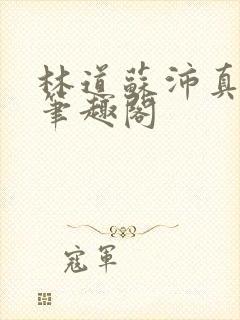 林道蘇沛真
筆趣閣
寇軍